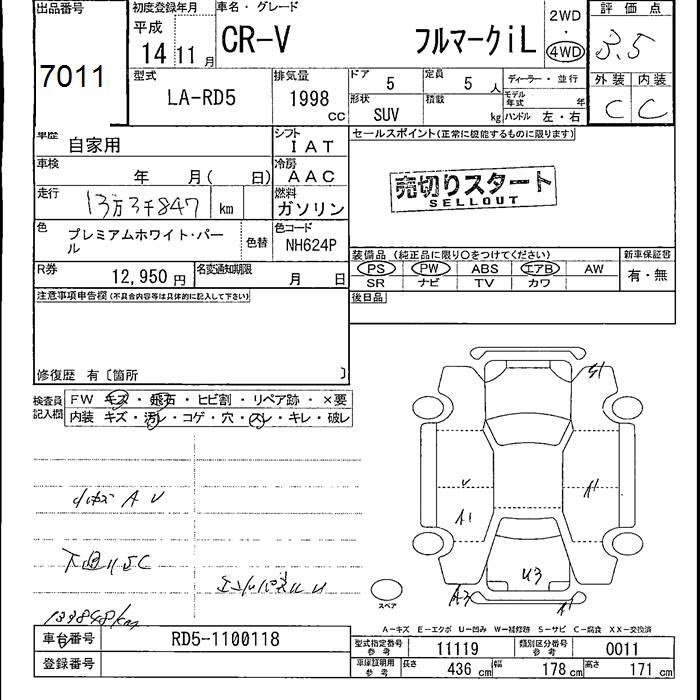 出品番号
7011
初度登録年月
平成
14 11 月
車名・グレード
CR-V フルマークiL
2WD
・
4WD
評価点
3.5
外装 内装
C C
型式
LA-RD5
排気量
1998 CC
ドア 5
定員 5 人
形状 SUV
積載 kg
ディーラー・並行
モデル年式 年
ハンドル 左・右
車歴 自家用
シフト IAT
車検 年 月( 日)
冷房 AAC
走行 13万3千847 km
燃料 ガソリン
色 プレミアムホワイト・パール
色替
色コード NH624P
R券 12,950 円
名変通知期限 月 日
セールスポイント(正常に機能するものに限ります)
売切りスタート
SELLOUT
装備品 (純正品に限り○をつけてください)
PS PW ABS エアB AW
SR ナビ TV カワ
新車保証書
有・無
後日品
注意事項申告欄(不具合内容等は具体的に記入して下さい)
修復歴 有〔箇所 〕
検査員記入欄
FW キズ・飛石・ヒビ割・リペア跡・×要
内装 キズ・汚レ・コゲ・穴・スレ・キレ・破レ
小キズ A U
下回りSC
133848km
A1
A1
U3
A3
A1
スペア
A-キズ E-エクボ U-凹み W-補修跡 S-サビ C-腐食 XX-交換済
車台番号 RD5-1100118
登録番号
型式指定番号 参考 11119
類別区分番号 参考 0011
車庫証明用 参考 長さ 436 cm 幅 178 cm 高さ 171 cm